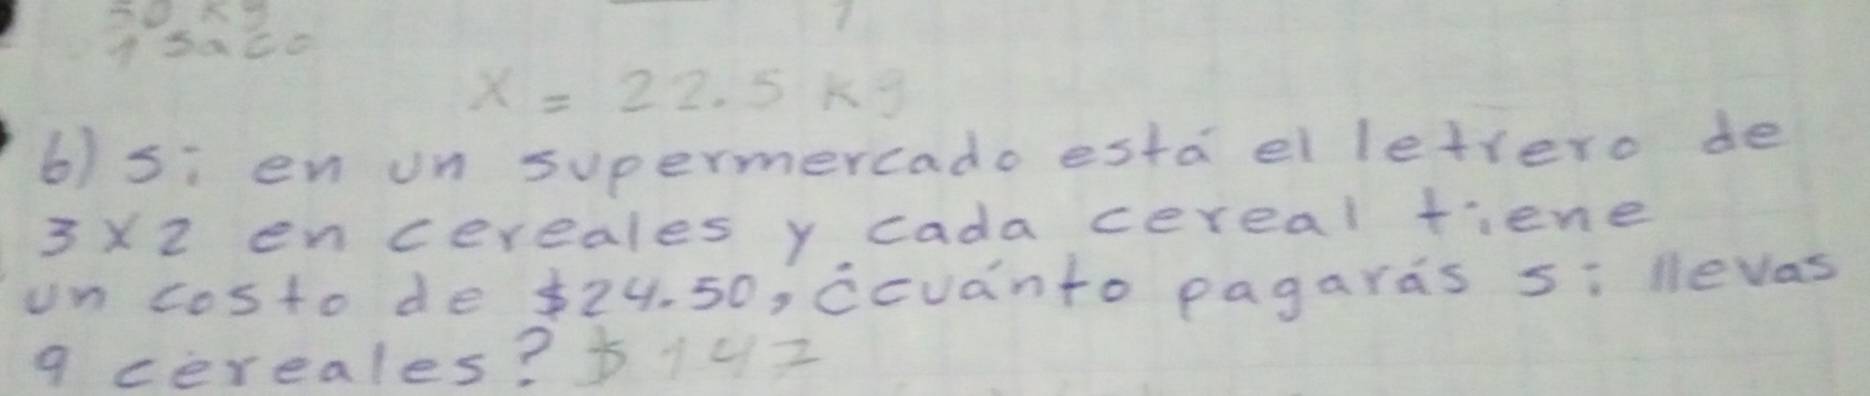 50 kg 1
1 saco
x = 22.5 kg
b) Si en un supermercado está el letrero de
3x2 en cereales y cada cereal tiene
un costo de $24.50, ¿cuánto pagarás si llevas
9 cereales? $147